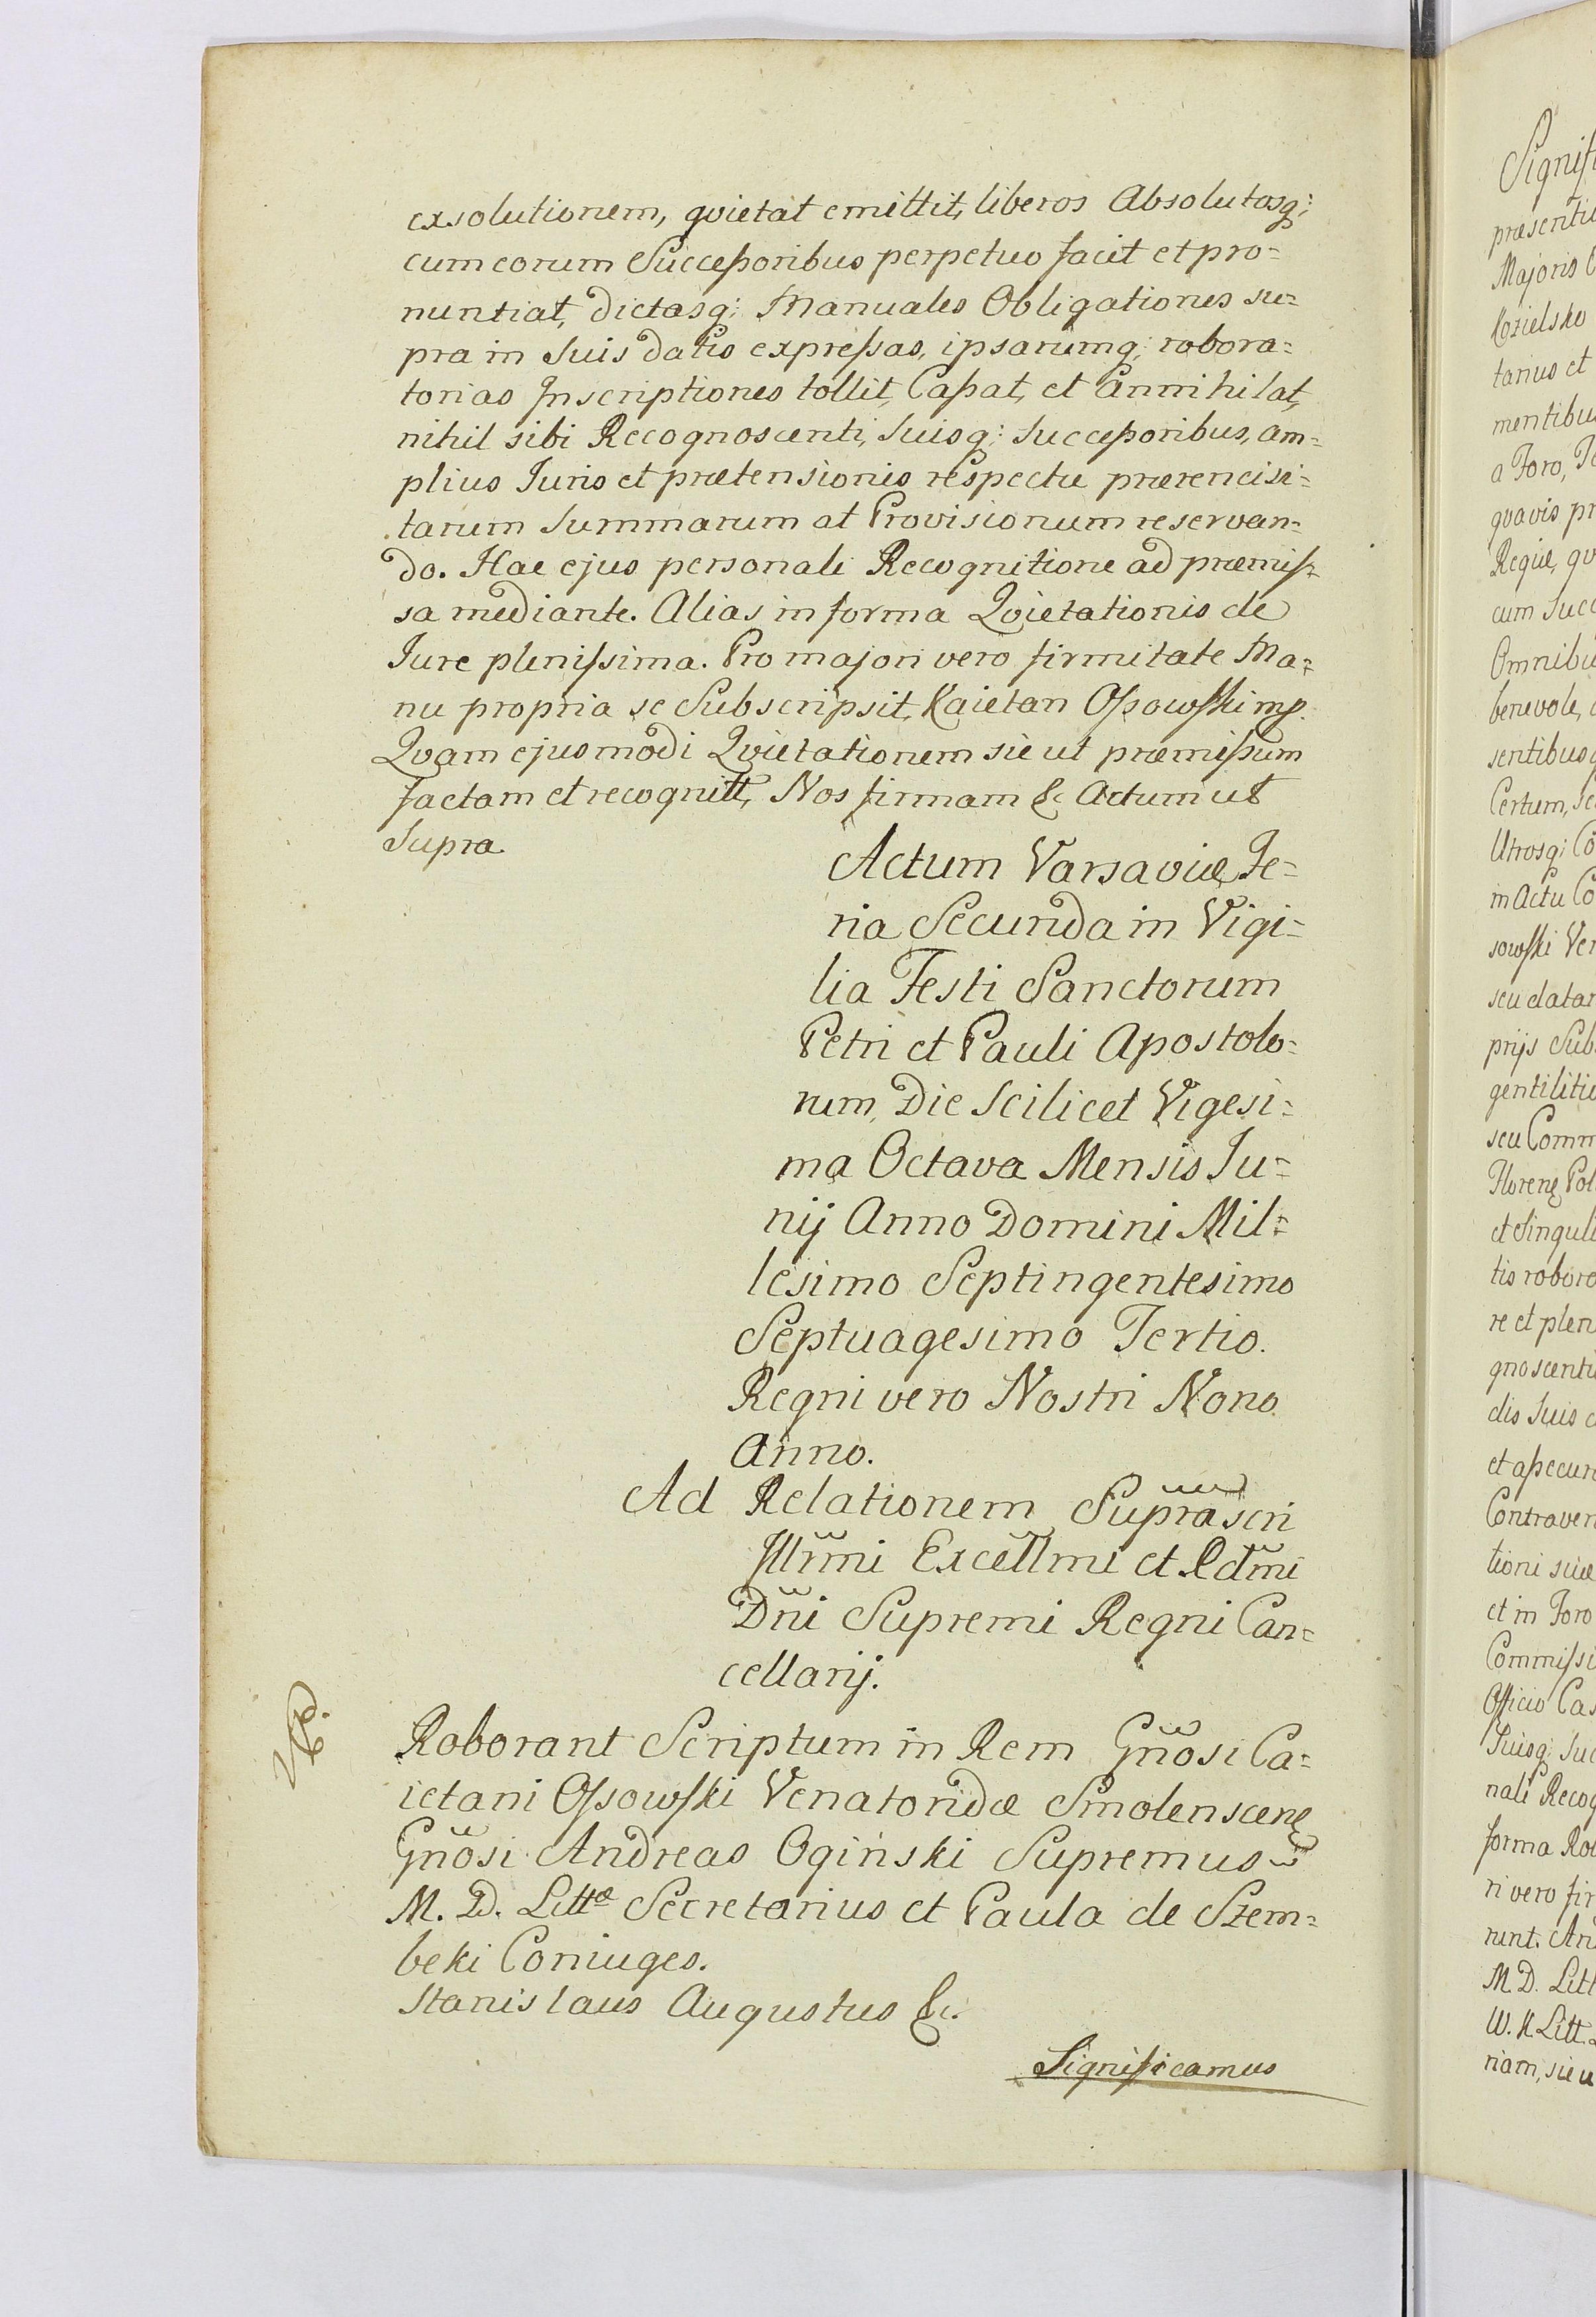 exsolutionem, qvietat emittit, liberos Absolutosq;
cum eorum Successoribus perpetuo facit et pro=
nuntiat, dictasq; Manuales Obligationes su=
pra in Suis datis expressas, ipsarumq; robora=
torias Inscriptiones tollit, Cassat, et Annihilat,
nihil sibi Recognoscenti, Suisq; Successoribus, am=
plius Juris et prætensionis respectu prærencisi=
tarum Summarum at Provisionum reservan=
do. Hac ejus personali Recognitione ad præmis=
sa mediante. Alias in forma Qvietationis de
Jure plenissima. Pro majori vero firmitate Ma=
nu propria se Subscripsit, Kaietan Ossowski mp.
Qvam ejusmodi Qvietationem sic ut præmissum
factam et recognitt, Nos firmam &c Actum ut
Supra
Actum Varsaviæ Fe=
ria Secunda in Vigi=
lia Festi Sanctorum
Petri et Pauli Apostolo=
rum, Die Scilicet Vigesi=
ma Octava Mensis Ju=
nij Anno Domini Mil=
lesimo Septingentesimo
Septuagesimo Tertio.
Regni vero Nostri Nono
Anno.
Ad Relationem Suprascri
Illrmi Excellmi et Rdmi
Dñi Supremi Regni Can=
cellarij.
Roborant Scriptum in Rem Gñosi Ca=
ietani Ossowski Venatoridæ Smolenscen
Gñosi Andreas Ogiński Supremus
M. D. Littæ Secretarius et Paula de Szem=
beki Coniuges.
Stanislaus Augustus &c.
Significamus
Signifi
præsentib
Majoris
Kozielsko
tarius et
mentibus
a Foro,
qvavis pr
Regiæ, qv
cum Succ
Omnibu
benevole,
sentibusq
Certum,
Utrosq;
in Actu Co
sowski Ven
seu datar
prijs Sub
gentilitio
seu Comm
Floren Pol
et Singuli
tis robora
re et plen
gnoscentu
dis Suis
et assecur
Contraven
tioni suæ
et in Foro
Commissi
Officio Cas
Suisq; Suc
nali Recog
forma Rob
ri vero fir
runt. An
M. D. Litt
W. K Litt.
riam, sic u